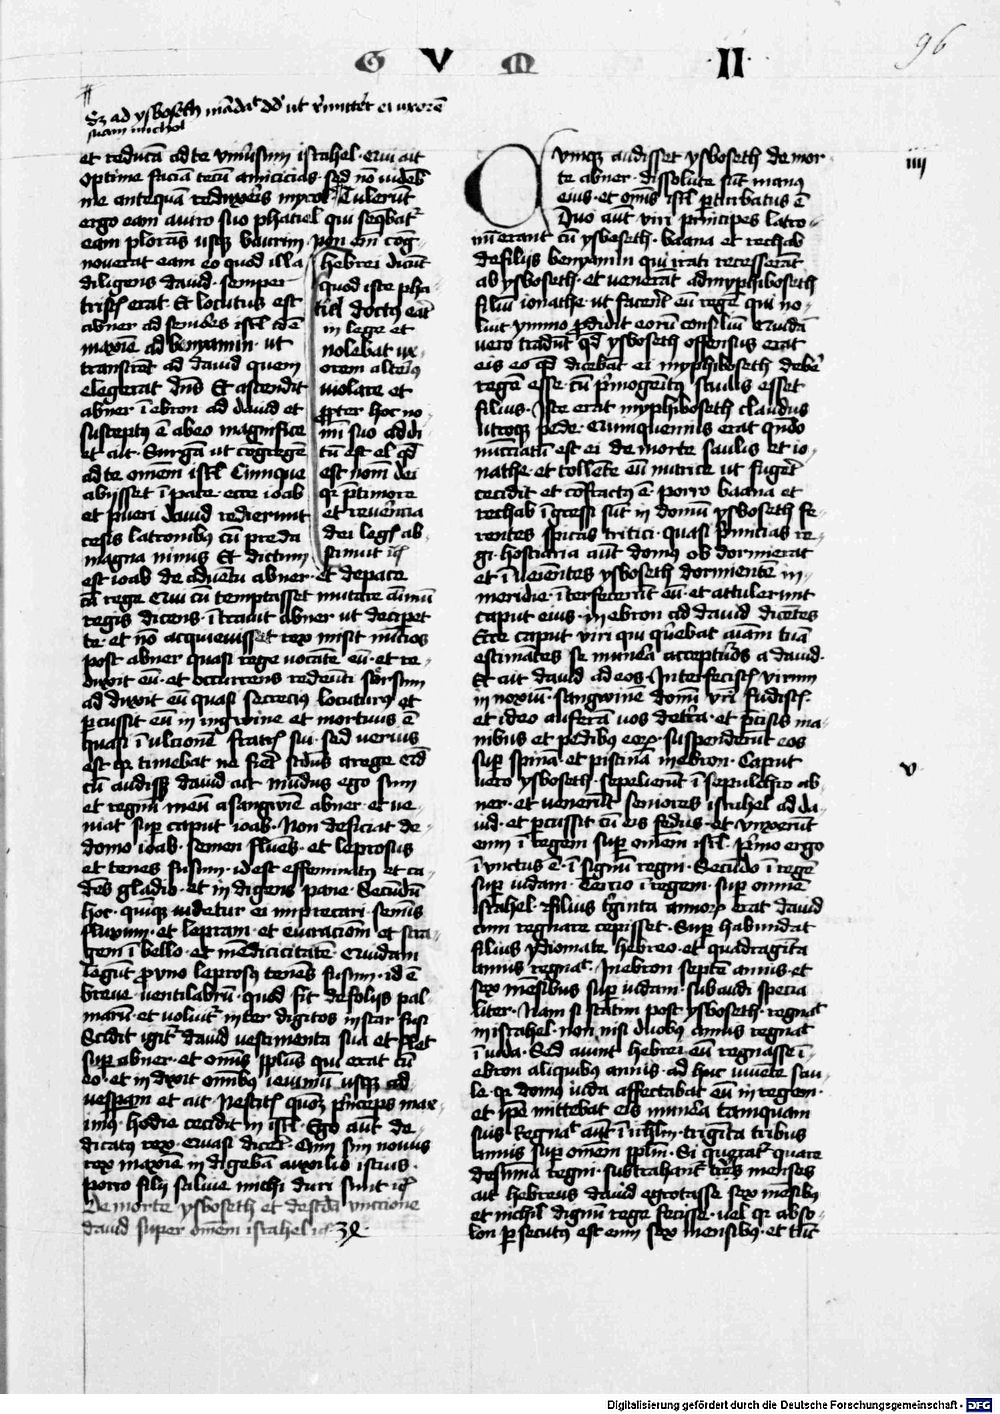 G V M II
96
Sz ad ysboseth mādaᵗ dd' ut r̄mittēt ei uxorē
suam michol
et reducā ad te vniūsum israhel · Cui ait
Optime faciā tecū amicicias · sed nō videb'
me antequā reduxeris mycol · Tulerūt
ergo eam a uiro suo phatiel qui seqbat'
eam plorās usq₃ baurim · non em̄ cog-
nouerat eam eo quod illa
diligens dauid · semper
tristis erat · Et locutus est
abner ad seniores isrl' idē
maxīe ad benyamin · ut
transirēt ad dauid quem
elegerat dn̄s Et ascendit
abner ī ebron ad dauid et
susceptus ē ab eo magnifice
et ait · Surgā ut cōgregē
ad te omēm isrl' Cumque
abijsset ī pace · ecce ioab
et pueri dauid redierunt
cesis latronibus cū preda
magna nimis Et dictum
hebrei dicūt
quod iste pha-
tiel doctus erat
in lege et
nolebat ux-
orem alterius
violare et
ꝓpter hoc no-
mī suo addi-
tū est el qd'
est nomē dei
qr p̄ timore
et reuerētia
dei leg' ab-
stinuit
est ioab de aduētu abner · et de pace
cū rege Qui cū temptasset mutare aīmū
regis dicens · ītrauit abner ut deciperet
te · et nō acquieuisset rex misit nūcios
post abner quasi rege uocāte eū · et re-
duxit eū · et occurrens redeūti seorsum
adduxit eū quasi secrecius locuturus et
ꝑcussit eū in ingwine et mortuus ē
quasi ī ulcionē fratris sui · sed uerius
est qr timebat ne fieret
cū audisset dauid ait mūdus ego sum
et regnū meū a sangwīe abner · et ve-
niat sup caput ioab · Non deficiat de
domo ioab · semen fluēs · et leprosus
et tenēs fusum · id est effeminatus et ca-
dēs gladio · et indigens pane · Secūdū
hoc · quinq₃ uidetur ei imprecari · semīs
fluxum · et lepram · et euiracionē et stra-
gem ī bello · et mēdicitatē · Quidam
legūt ꝓ uno leprosus tenēs fusum · id ē
breue uentilabrū · quod fit de folijs pal-
marū · et voluit' inter digitos instar fusi
Scidit igit' dauid vestimenta sua et flet
sup abner · et om̄is ppl̄us qui erat cū
eo · et indixit om̄ibus ieiuniū usq₃ ad
uesperam et ait · Nescitis qm̄ princeps max-
imus hodie cecidit in isrl' · Ego aūt de-
dicatus rex · Quasi diceret · Cum sim nouus
rex maxīe indigebā auxilio istius ·
porro filij saluie michi duri sunt
De morte ysboseth et de scd'a vnctione
dauid super omēm israhel
Cumq₃ audisset ysboseth de mor-
te abner · dissolute sūt manus
eius · et om̄is isrl' ꝑturbatus ē
Duo aūt viri principes latro-
nū erant cū ysboseth · baana et rechab
de filijs benyamin qui irati recesserāt
ab ysboseth · et uenerāt ad myphiboseth
filiū ionathe ut facerēt eū regē qui no-
luit ymmo ꝓdidit eorū consiliū Quidā
vero tradūt qd' ysboseth offensus erat
eis eo qd' dicebāt ei myphiboseth debē
regē esse cū p̄mogeniti saulis esset
filius · Iste erat myphiboseth claudus
utroq₃ pede · Quinquennis erat qn̄do
nūcciatū est ei de morte saulis et io-
nathe · et tollēte eū nutrice ut fugeret
cecidit et cōfractus ē · porro baana et
rechab īgressi sūt in domū ysboseth fe-
rentes spicas tritici · quasi p̄micias re-
gi · hostiaria aūt domus ob dormierat
et ī uenientes ysboseth dormientē in
meridie · īterfecerūt eū · et attulerunt
caput eius · in ebron ad dauid dicētes
Ecce caput viri qui querebat aīam tuā
estimātes se munera accepturos a dauid ·
Et ait dauid ad eos · Interfecistis virum
in noxiū · sangwinē domī uri fudistis ·
et ideo auferā uos de terra · et p̄cisis ma-
nibus et pedibus eorum · suspenderūt eos
sup spinā · et piscinā in ebron · Caput
uero ysboseth · sepelierūt ī sepulchro ab-
ner · et venerūt seniores israhel ad da-
uid · et ꝑcussit cū eis fedus · et vnxerūt
eum ī regem sup omēm isrl' · p̄mo ergo
ī vnctus ē · ī signū regni · Secūdo ī regē
sup iudam · Tercio ī regem · sup omnē
israhel · Filius triginta annorum erat dauid
cum regnare cepisset · Sup habundat
filius ydiomate hebreo · et quadragīta
annis regnauit · In ebron septē annis · et
sex mēsibus sup iudam · subaudi specia-
liter · Nam si statim post ysboseth · regnaᵗ
in israhel · non nisi duobus annis regnaᵗ
ī iuda · Sed aiunt hebrei eū regnasse ī
ebron aliquibus annis · ad huc uiuēte sau-
le · qr domus iuda affectabat eū in regem ·
et ip̄e mittebat eis munera tamquam
suis Regnaᵗ aūt ī irhlm · triginta tribus
annis sup omēm ppl̄m · Si querat' quare
de summa regni · subtrahant' tres menses
ait hebreus dauid egrotasse sex mēsibus
et nichil dignū rege fecisse · vel qr abso-
lon ꝑsecutus est eum sex mensibus · et tūc
iiij
v
Digitalisierung gefördert durch die Deutsche Forschungsgemeinschaft - DFG